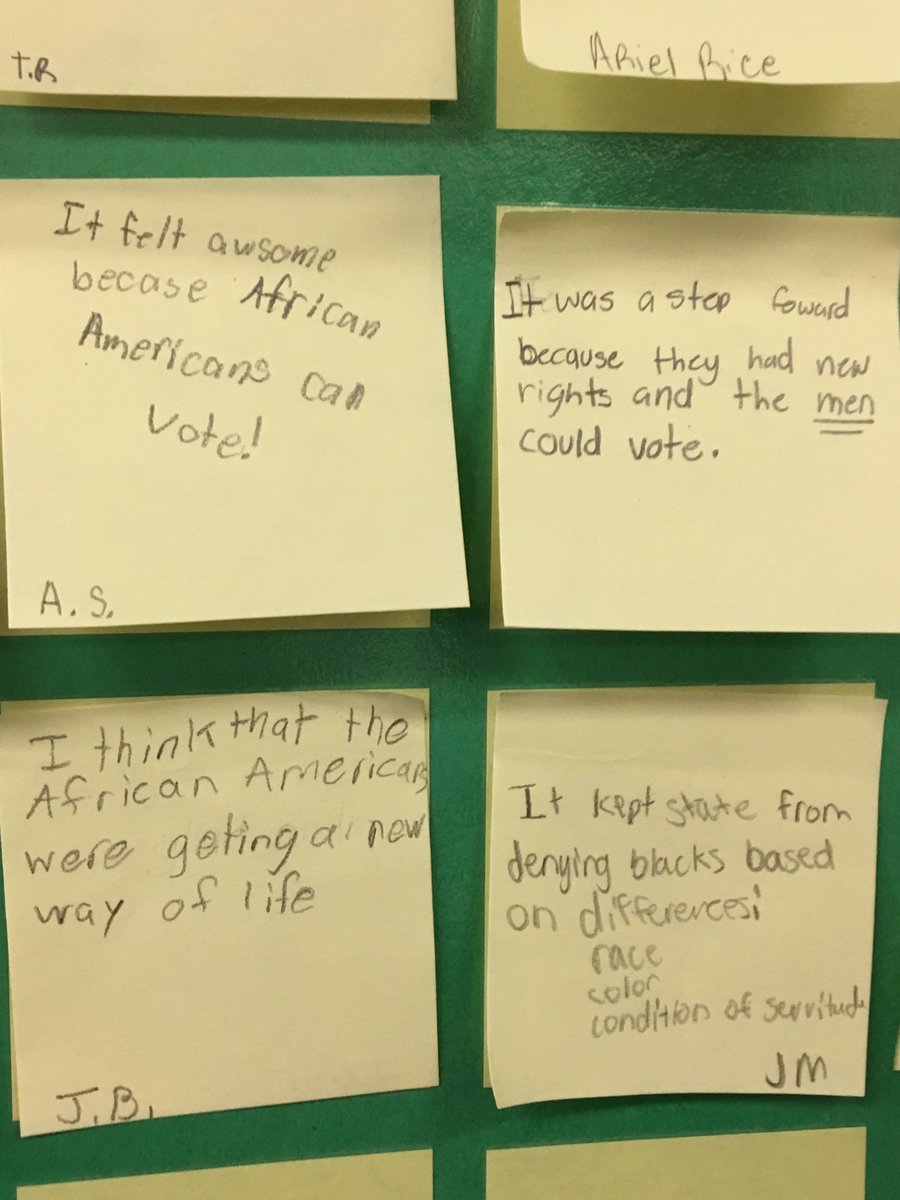 T.R
Ariel Rice
It felt awsome
becase African
Americans can
vote!
A.S.
It was a step foward
because they had new
rights and the men
could vote.
I think that the
African Americans
were geting a new
way of life
J.B.
It kept state from
denying blacks based
on differences:
race
color
condition of servitude
JM